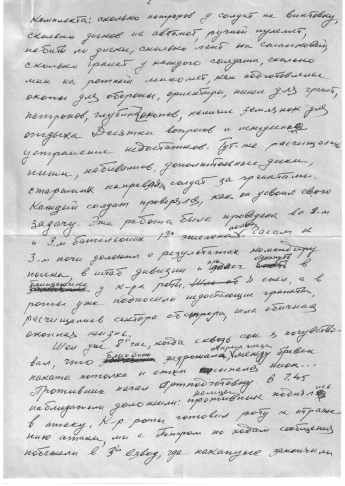 2
комплекта: сколько патронов у солдат на винтовку,
сколько дисков на автомат, ручной пулемет,
набиты ли диски, сколько лент на станковый,
сколько гранат у каждого солдата, сколько
мин на ротный миномет, как подготовлены
окопы для обороны, ориентиры, ниши для гранат,
патронов, глубина окопов, наличие землянок для
отдыха. Десятки вопросов и немедленное
устранение недостатков. Тут же расчищались
ниши, набивались дополнительные диски,
старшина направлял солдат за гранатами.
Каждый солдат проверялся, как он усвоил свою
задачу. Эта работа была проведена во 2-м
и 3-м батальонах 1го эшелона полка. Часам к
3-м ночи доложил о результатах командиру
полка, в штаб дивизии и в
у к-ра роты, спал, а в
роты уже подносили недостающие гранаты,
расчищались сектора обстрела, шла обычная
окопная жизнь.
Шел уже 8й час, когда сквозь сон я почувство-
вал, что задрожала, между бревен
наката потолка и стен посыпался песок...
Противник начал артподготовку. В 7.45
наблюдатели доложили: противник поднялся
в атаку. К-р роты готовил роту к отраже-
нию атаки, мы с Петром по ходам сообщения
побежали в 3й взвод, где накануне закончили